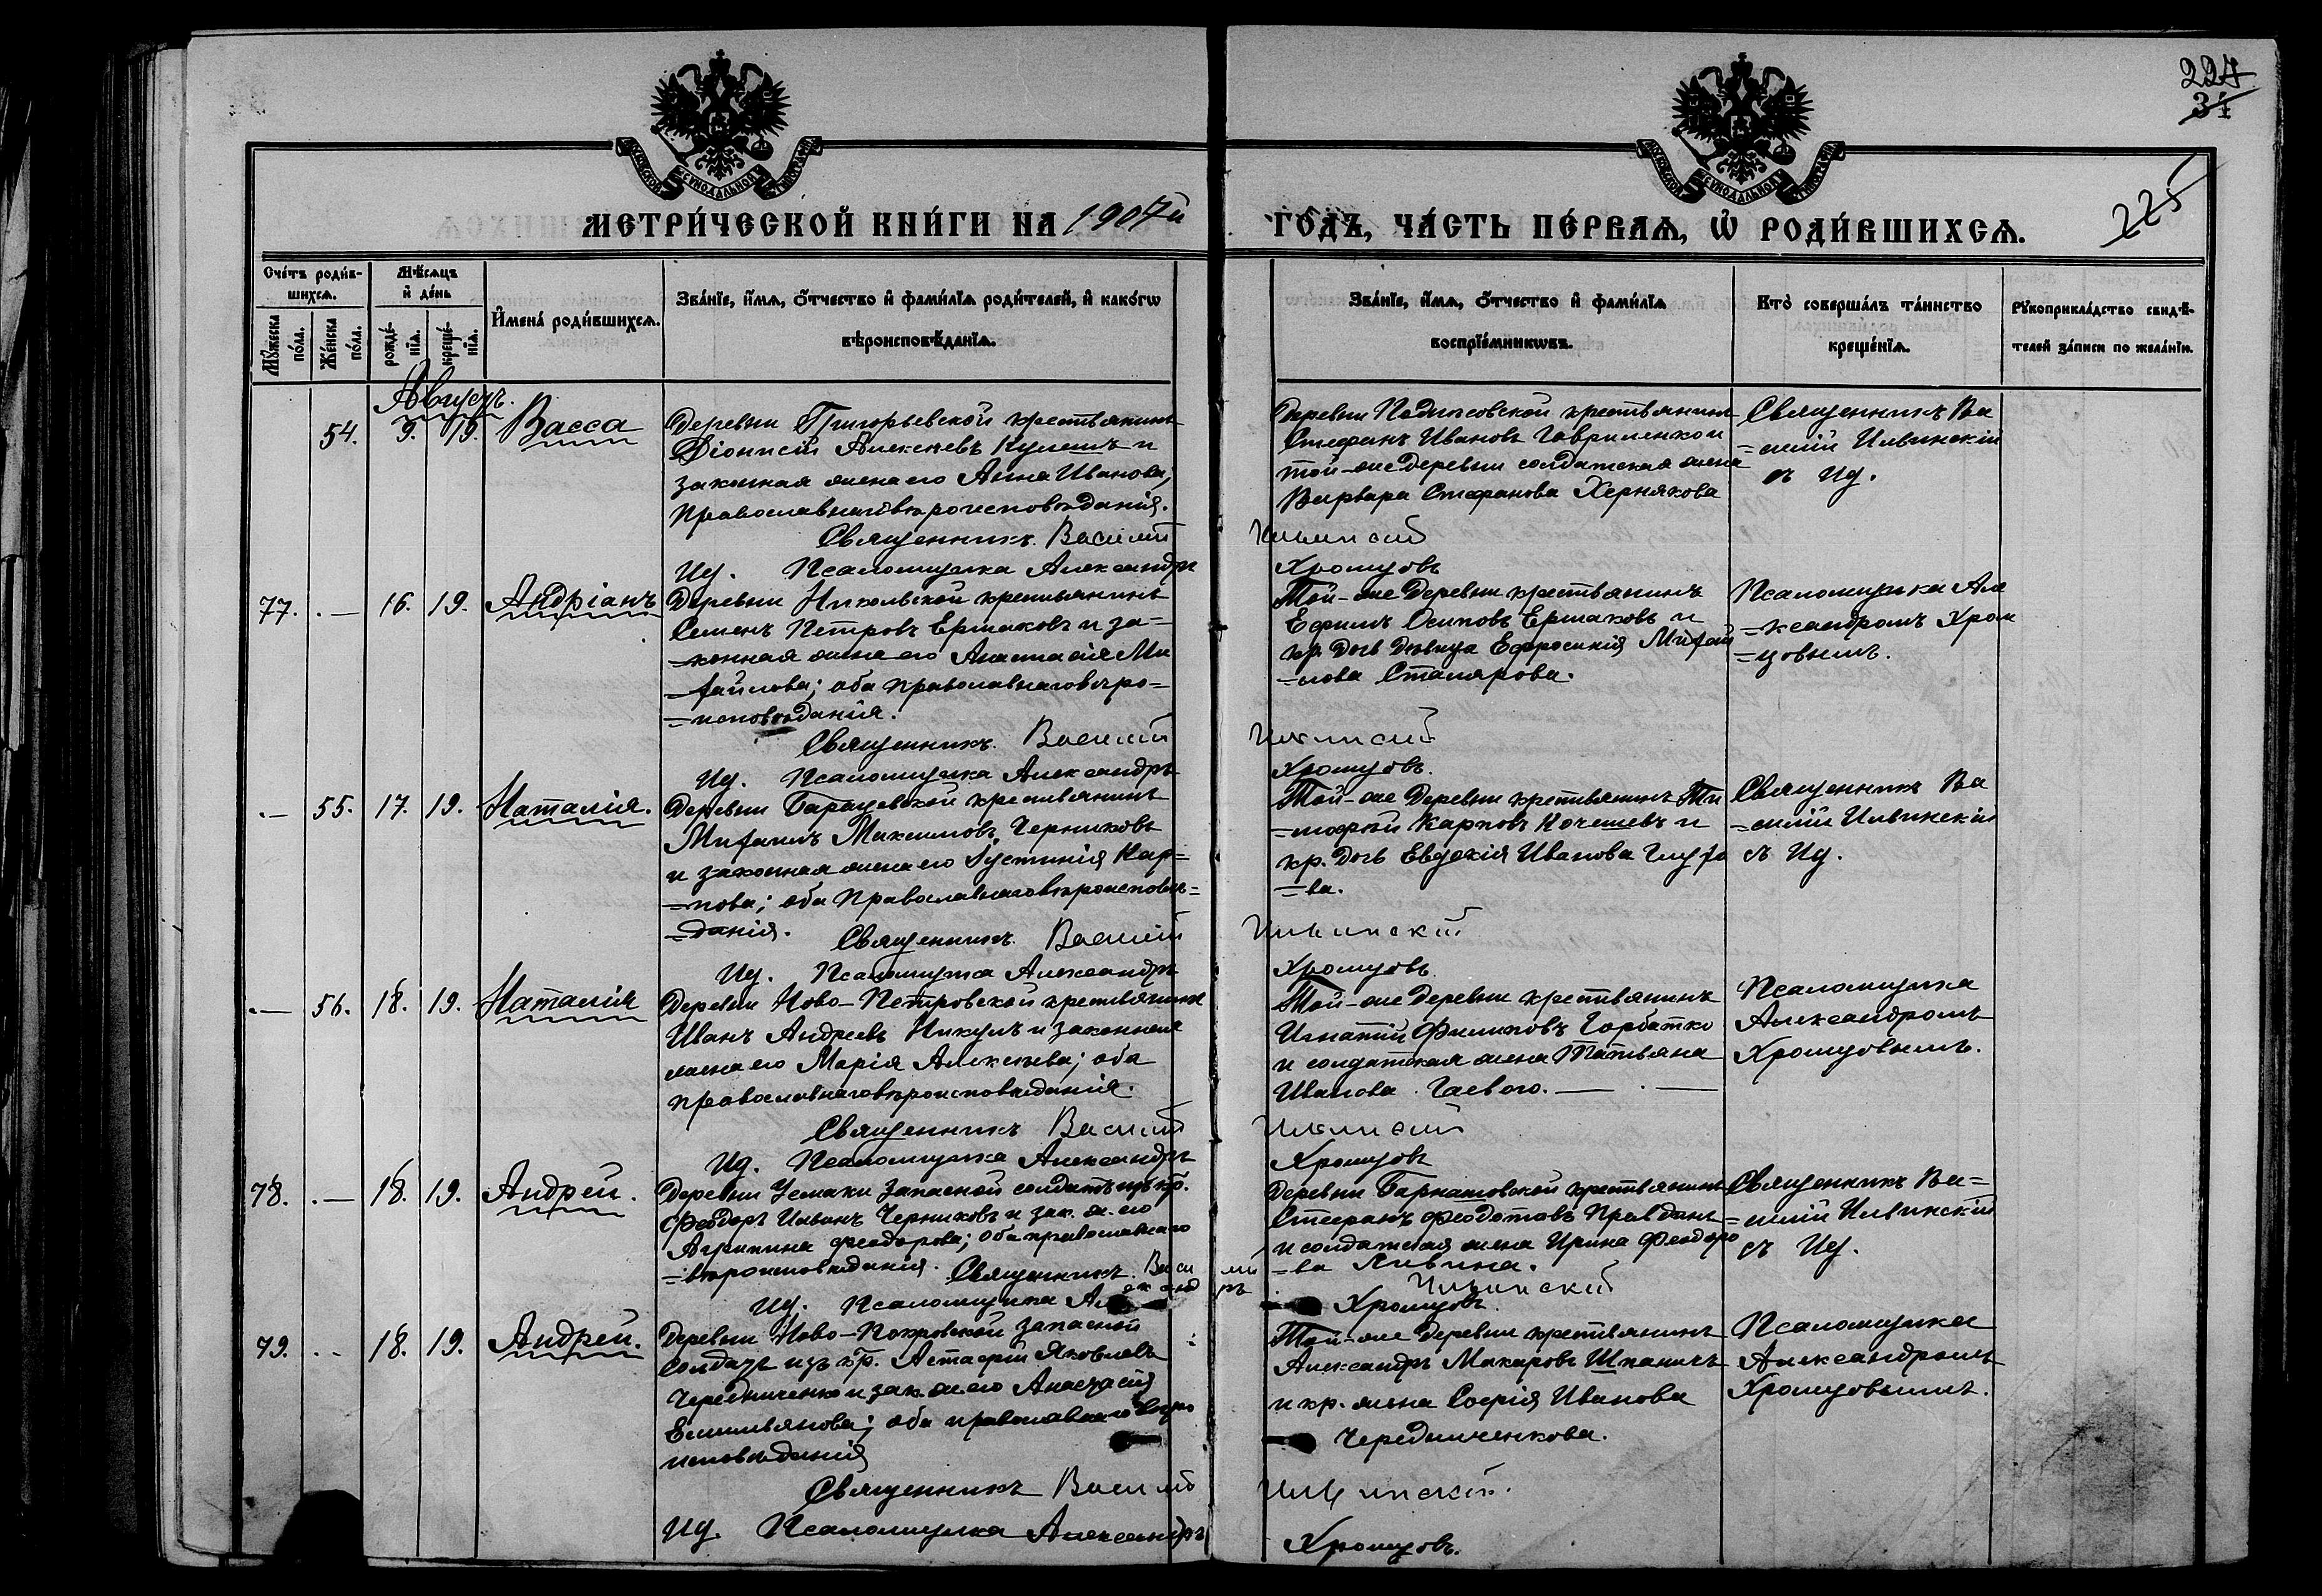 224
34
225
МОСКОВСКОЙ СѴНОДАЛЬНОЙ ТИПОГРАФІИ
МОСКОВСКОЙ СѴНОДАЛЬНОЙ ТИПОГРАФІИ
МЕТРИ́ЧЕСКОЙ КНИ́ГИ НА 1907й
ГО́ДЪ, ЧА́СТЬ ПЕ́РВАѦ, Ѡ РОДИ́ВШИХСѦ.
Сче́тъ роди́в-
шихсѧ.
Мꙋ́жеска по́ла.
Же́нска по́ла.
Мѣ́сѧцъ
и де́нь
рожде́-
нїѧ.
креще́-
нїѧ.
Имена́ роди́вшихсѧ.
Зва́нїе, и́мѧ, о́тчество и фами́лїѧ роди́телей, и како́гѡ
вѣроисповѣ́данїѧ.
Зва́нїе, и́мѧ, о́тчество и фами́лїѧ
воспрїе́мникѡвъ.
Кто̀ соверша́лъ та́инство
креще́нїѧ.
Рꙋкоприкла́дство свидѣ́-
телей за́писи по жела́нїю.
Августъ.
54. 9. 19. Васса
Деревни Григорьевской крестьянинъ
Діонисій Алексѣевъ Кулешъ и
законная жена его Анна Иванова;
православнаго вѣроисповѣданія.
Священникъ Василій
Ид. Псаломщика Александръ
Деревни крестьянинъ
Стефанъ Ивановъ Гавриленко и
той-же деревни солдатская жена
Варвара Стефанова Хернякова
Ильинскій
Хромцовъ
Священникъ Ва
=силій Ильинскій
съ Ид.
77. — 16. 19. Андріанъ
Деревни Никольской крестьянинъ
Семенъ Петровъ Ермаковъ и за=
=конная жена его Анастасія Ми
=хайлова; оба православнаго вѣро=
=исповѣданія.
Священникъ Василій
Ид. Псаломщика Александръ
Той-же деревни крестьянинъ
Ефимъ Осиповъ Ермаковъ и
кр. дочь дѣвица Ефросинія Михай
=лова Столярова.
Ильинскій
Хромцовъ.
Псаломщика Але
=ксандромъ Хром
=цовымъ.
— 55. 17. 19. Наталія.
Деревни крестьянинъ
Михаилъ Максимовъ Черниковъ
и законная жена его Іустинія Кар=
=пова; оба православнаго вѣроисповѣ=
=данія. Священникъ Василій
Ид. Псаломщика Александръ
Той-же деревни крестьянинъ Ти
=мофей Карповъ Кочешевъ и
кр. дочь Евдокія Иванова Глухо
=ва.
Ильинскій
Хромцовъ.
Священникъ Ва
=силій Ильинскій
съ Ид.
— 56. 18. 19. Наталія
Деревни Ново-Петровской крестьянинъ
Иванъ Андреевъ Никулъ и законная
жена его Марія Алексѣева; оба
православнаго вѣроисповѣданія.
Священникъ Василій
Ид. Псаломщика Александръ
Той-же деревни крестьянинъ
Игнатій Филиповъ Горбатко
и солдатская жена Татьяна
Иванова Гаевого.
Ильинскій
Хромцовъ
Псаломщика
Александромъ
Хромцовымъ.
78. — 18. 19. Андрей.
Деревни запасной солдатъ изъ кр.
Феодоръ Черниковъ и зак. ж. его
Агрипина Феодорова; оба православнаго
=вѣроисповѣданія. Священникъ Васи лій
Ид. Псаломщика Александръ
Деревни крестьянинъ
Стефанъ Феодотовъ
и солдатская жена Ирина Феодоро
=ва
Ильинскій
Хромцовъ.
Священникъ Ва=
=силій Ильинскій
съ Ид.
79. 18. 19. Андрей.
Деревни Ново-Покровской запасной
солдатъ изъ кр. Астафій Яковлевъ
Чередниченко и зак. ж. его Анастасія
Емильянова; оба православнаго вѣро
исповѣданія
Священникъ Василій
Ид. Псаломщика Александръ
Той-же деревни крестьянинъ
Александръ Макаровъ Шпаничъ
и кр. жена Софія Иванова
Чередниченкова.
Ильинскій.
Хромцовъ.
Псаломщика
Александромъ
Хромцовымъ.